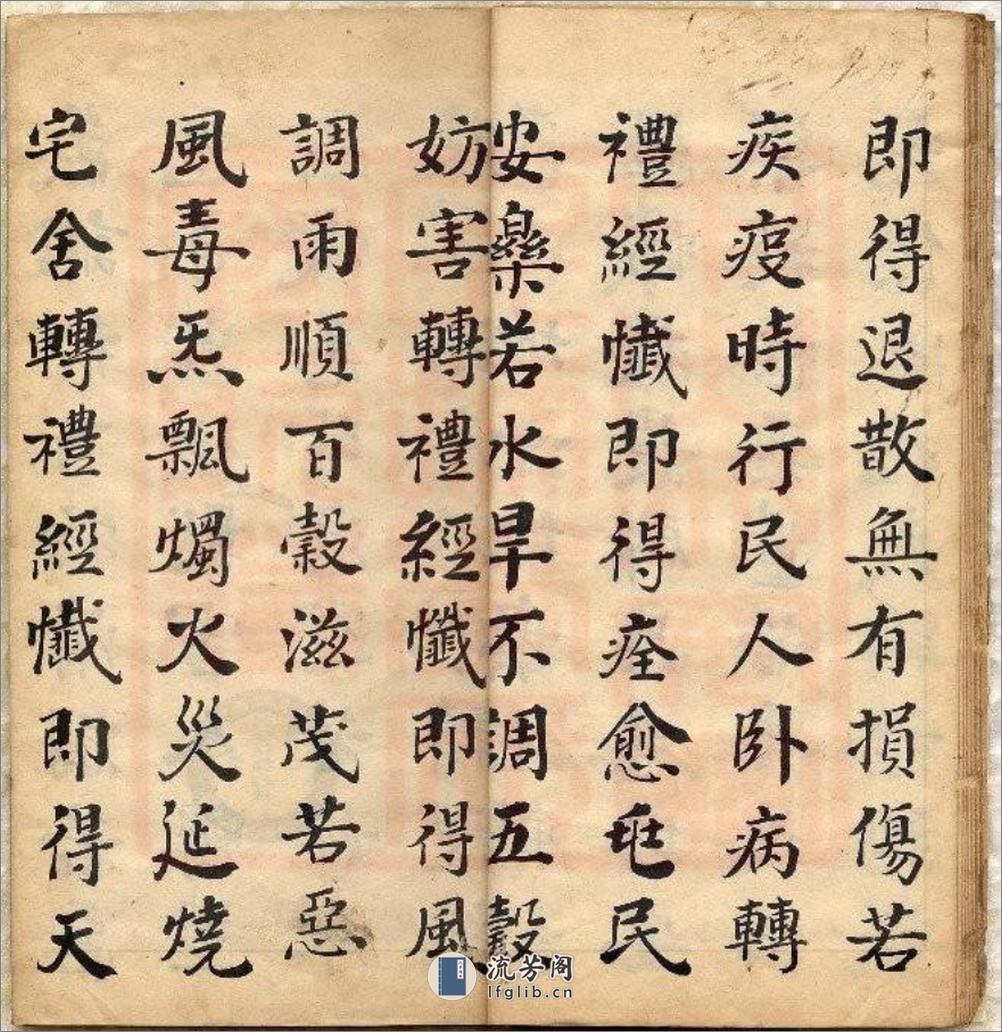 即得退散無有損傷若
疾疫時行民人卧病轉
禮經懺即得痊愈民
安樂若水旱不調五穀
妨害轉禮經懺即得風
調雨順百穀滋茂若惡
風毒炁飄燭火災延燒
宅舍轉禮經懺即得天
流芳阁
lfglib.cn